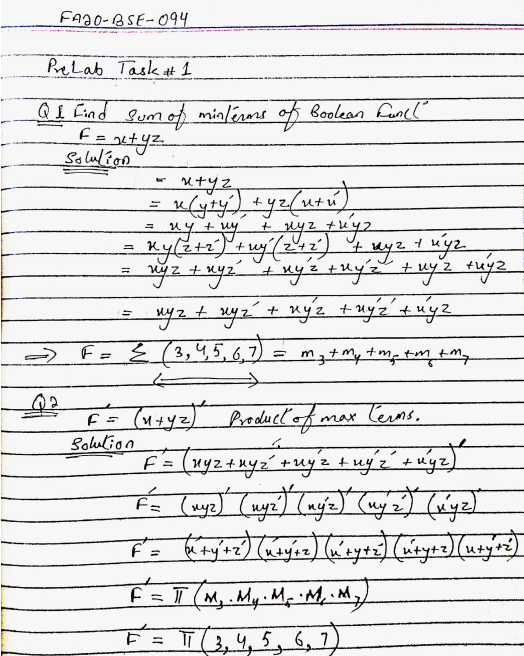 FA20-BSE-094
PreLab Task # 1
Q1 Find sum of minterms of Boolean Funct'
F = x+yz
Solution
= x+yz
= x(y+y') + yz(x+x')
= xy + xy' + xyz + x'yz
= xy(z+z') + xy'(z+z') + xyz + x'yz
= xyz + xyz' + xy'z + xy'z' + xyz + x'yz
= xyz + xyz' + xy'z + xy'z' + x'yz
=> F = Σ (3,4,5,6,7) = m3+m4+m5+m6+m7
Q2
F' = (x+yz)' Product of max terms.
Solution
F' = (xyz+xyz'+xy'z+xy'z'+x'yz)'
F' = (xyz)' (xyz')' (xy'z)' (xy'z')' (x'yz)'
F' = (x'+y'+z') (x'+y'+z) (x'+y+z') (x'+y+z) (x+y'+z')
F' = π (M3.M4.M5.M6.M7)
F' = π (3, 4, 5, 6, 7)